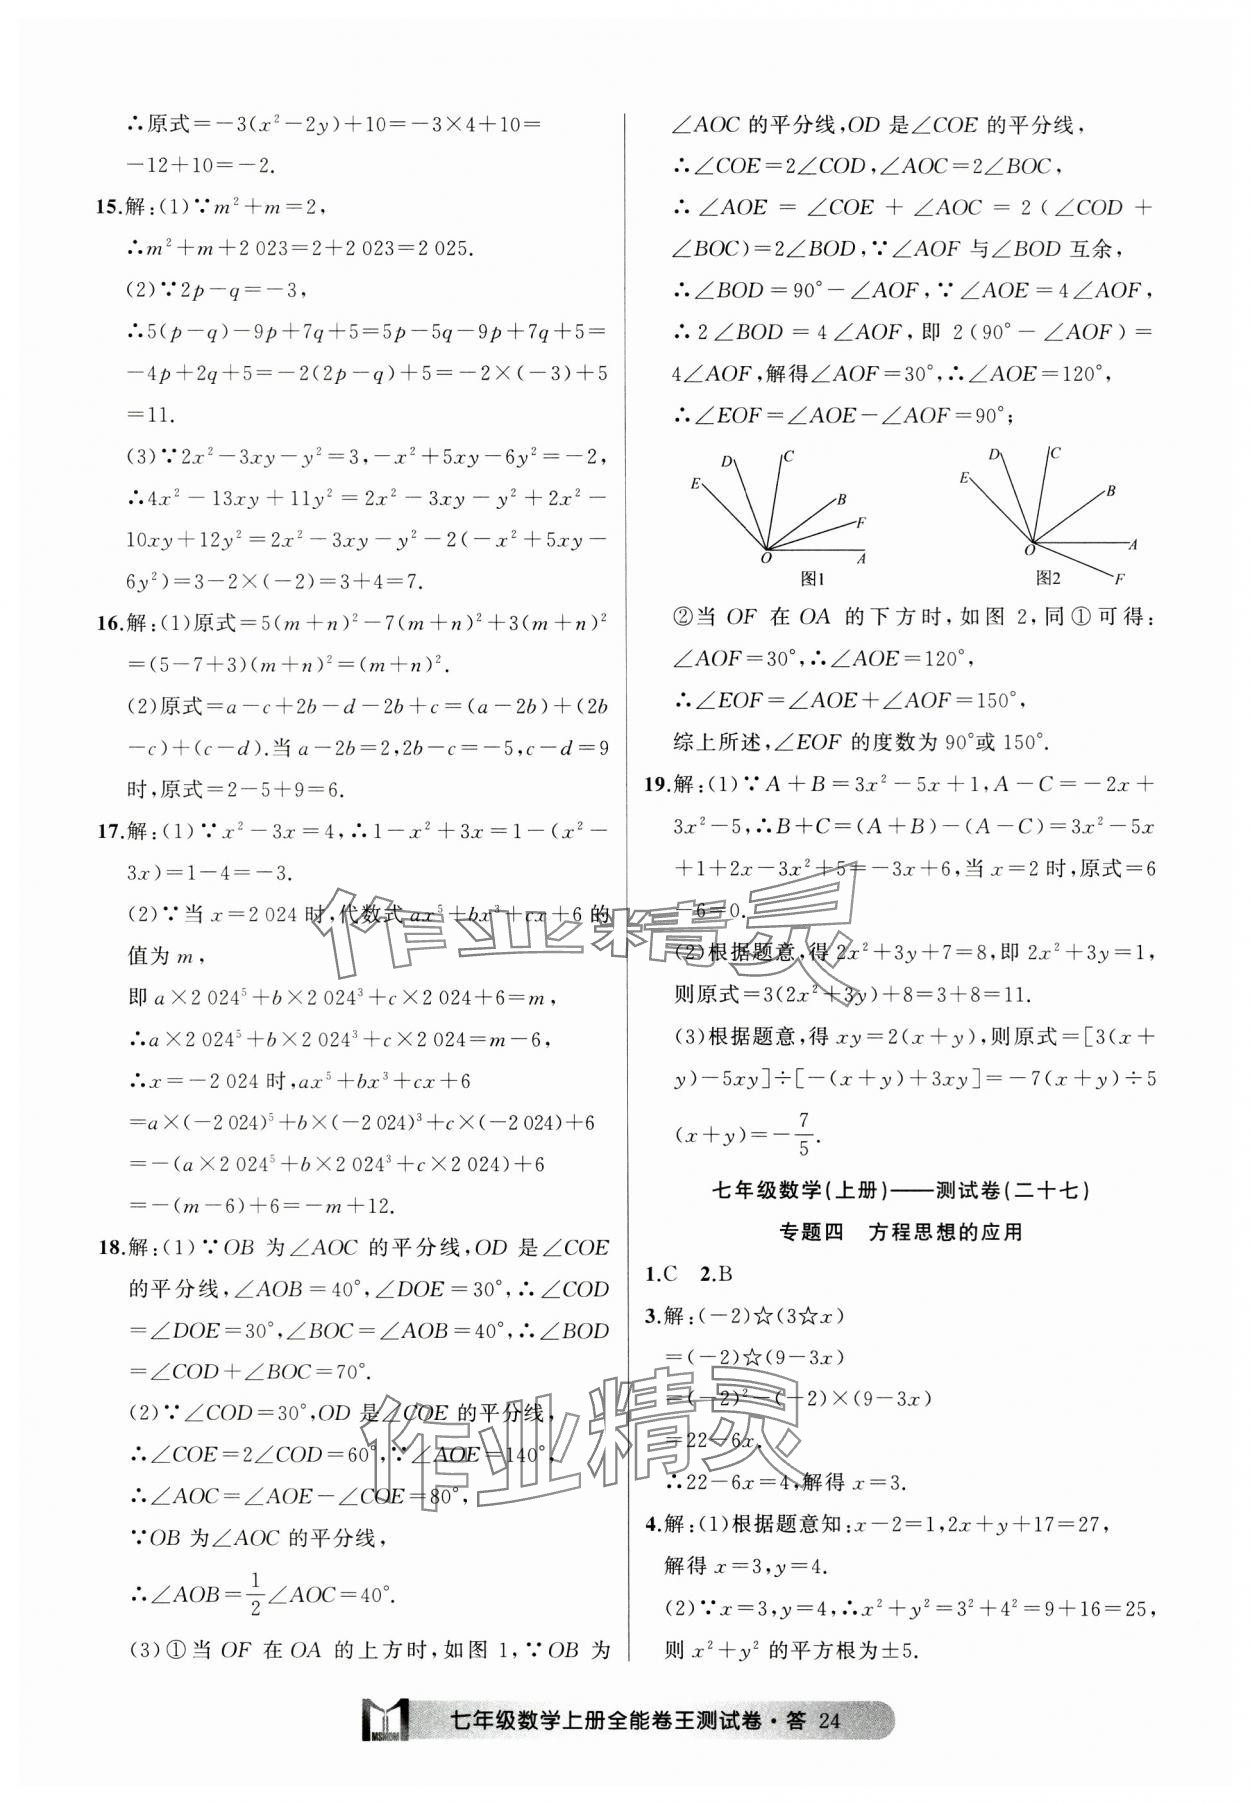 ∴原式=-3(x²-2y)+10=-3×4+10=
-12+10=-2.
15.解:(1)∵m²+m=2,
∴m²+m+2 023=2+2 023=2 025.
(2)∵2p-q=-3,
∴5(p-q)-9p+7q+5=5p-5q-9p+7q+5=
-4p+2q+5=-2(2p-q)+5=-2×(-3)+5
=11.
(3)∵2x²-3xy-y²=3,-x²+5xy-6y²=-2,
∴4x²-13xy+11y²=2x²-3xy-y²+2x²-
10xy+12y²=2x²-3xy-y²-2(-x²+5xy-
6y²)=3-2×(-2)=3+4=7.
16.解:(1)原式=5(m+n)²-7(m+n)²+3(m+n)²
=(5-7+3)(m+n)²=(m+n)².
(2)原式=a-c+2b-d-2b+c=(a-2b)+(2b
-c)+(c-d).当 a-2b=2,2b-c=-5,c-d=9
时,原式=2-5+9=6.
17.解:(1)∵x²-3x=4,∴1-x²+3x=1-(x²-
3x)=1-4=-3.
(2)∵当 x=2 024 时,代数式 ax⁵+bx³+cx+6 的
值为 m,
即 a×2 024⁵+b×2 024³+c×2 024+6=m,
∴a×2 024⁵+b×2 024³+c×2 024=m-6,
∴x=-2 024 时,ax⁵+bx³+cx+6
=a×(-2 024)⁵+b×(-2 024)³+c×(-2 024)+6
=-(a×2 024⁵+b×2 024³+c×2 024)+6
=-(m-6)+6=-m+12.
18.解:(1)∵OB 为∠AOC 的平分线,OD 是∠COE
的平分线,∠AOB=40°,∠DOE=30°,∴∠COD
=∠DOE=30°,∠BOC=∠AOB=40°,∴∠BOD
=∠COD+∠BOC=70°.
(2)∵∠COD=30°,OD 是∠COE 的平分线,
∴∠COE=2∠COD=60°,∵∠AOE=140°,
∴∠AOC=∠AOE-∠COE=80°,
∵OB 为∠AOC 的平分线,
∴∠AOB=1/2∠AOC=40°.
(3)①当 OF 在 OA 的上方时,如图 1,∵OB 为
∠AOC 的平分线,OD 是∠COE 的平分线,
∴∠COE=2∠COD,∠AOC=2∠BOC,
∴∠AOE=∠COE+∠AOC=2(∠COD+
∠BOC)=2∠BOD,∵∠AOF 与∠BOD 互余,
∴∠BOD=90°-∠AOF,∵∠AOE=4∠AOF,
∴2∠BOD=4∠AOF,即 2(90°-∠AOF)=
4∠AOF,解得∠AOF=30°,∴∠AOE=120°,
∴∠EOF=∠AOE-∠AOF=90°;
E D C B F O A
图1
E D C B O A F
图2
②当 OF 在 OA 的下方时,如图 2,同①可得:
∠AOF=30°,∴∠AOE=120°,
∴∠EOF=∠AOE+∠AOF=150°,
综上所述,∠EOF 的度数为 90°或 150°.
19.解:(1)∵A+B=3x²-5x+1,A-C=-2x+
3x²-5,∴B+C=(A+B)-(A-C)=3x²-5x
+1+2x-3x²+5=-3x+6,当 x=2 时,原式=6
-6=0.
(2)根据题意,得 2x²+3y+7=8,即 2x²+3y=1,
则原式=3(2x²+3y)+8=3+8=11.
(3)根据题意,得 xy=2(x+y),则原式=[3(x+
y)-5xy]÷[-(x+y)+3xy]=-7(x+y)÷5
(x+y)=-7/5.
七年级数学(上册)——测试卷(二十七)
专题四 方程思想的应用
1.C 2.B
3.解:(-2)☆(3☆x)
=(-2)☆(9-3x)
=(-2)²-(-2)×(9-3x)
=22-6x.
∴22-6x=4,解得 x=3.
4.解:(1)根据题意知:x-2=1,2x+y+17=27,
解得 x=3,y=4.
(2)∵x=3,y=4,∴x²+y²=3²+4²=9+16=25,
则 x²+y² 的平方根为±5.
作业精灵
作业精灵
MSNDM
七年级数学上册全能卷王测试卷·答 24